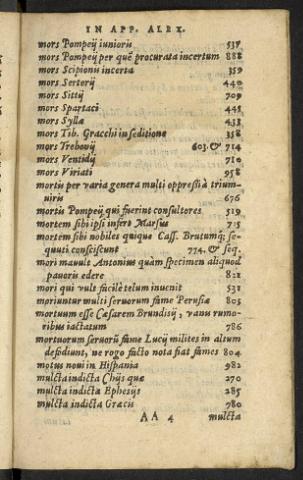 IN APP. ALEX.
mors Pompeij iunioris 537
mors Pompeij per quẽ procurata incertum 888
mors Scipionis incerta 359
mors Sertorij 440
mors Sittij 709
mors Spartaci 445
mors Syllæ 433
mors Tib. Gracchi in seditione 358
mors Trebonij 603. & 714
mors Ventidij 710
mors Viriati 958
mortis per varia genera multi oppressi à trium-
uiris 676
mortis Pompeij qui fuerint consultores 519
mortem sibi ipsi infert Marsus 715
mortem sibi nobiles quique Cass. Brutumq; se-
quuti consciscunt 774. & seq.
mori mauult Antonius quàm specimen aliquod
pauoris edere 821
mori qui vult facilè telum inuenit 531
moriuntur multi seruorum fame Perusiæ 803
mortuum esse Cæsarem Brundisij, vanu rumo-
ribus iactatum 786
mortuorum seruorũ fame Lucij milites in altum
defodiunt, ne rogo facto nota fiat fames 804
motus noui in Hispania 982
mulcta indicta Chijs quæ 270
mulcta indicta Ephesijs 285
mulcta indicta Græcis 780
AA 4 mulcta